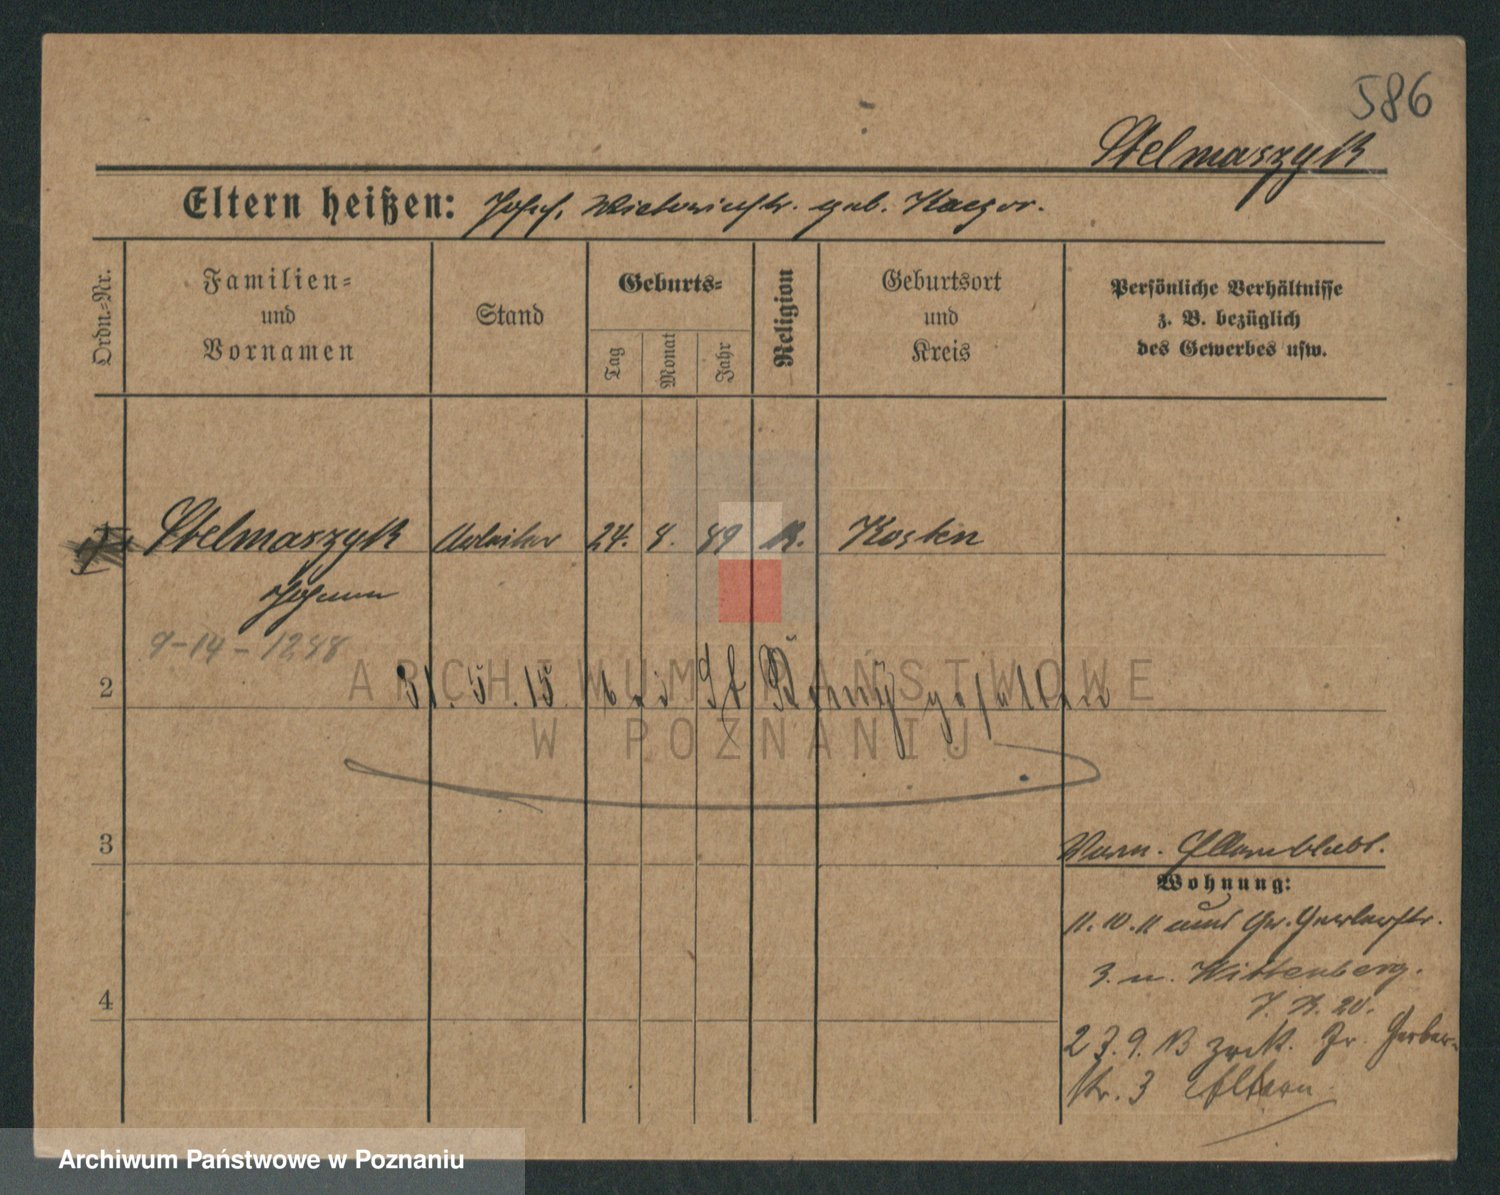 586
Stelmaszyk
Eltern heißen: Josef, geb. Kaczor.
Ordn.-Nr.
Familien-
und
Vornamen
Stand
Geburts-
Tag
Monat
Jahr
Religion
Geburtsort
und
Kreis
Persönliche Verhältnisse
z. B. bezüglich
des Gewerbes usw.
Stelmaszyk Arbeiter 24. 8. 89 K. Kosten
Johann
9-14-1288
2
31. 5. 15. bei gefallen
ARCHIWUM PAŃSTWOWE
W POZNANIU
3
Vorm.
Wohnung:
11. 10. 11 aus Gr. Gerberstr.
3. n. Wittenberg.
J. R. 20.
4
23. 9. 13 zrck. Gr. Gerber-
str. 3 Eltern
Archiwum Państwowe w Poznaniu